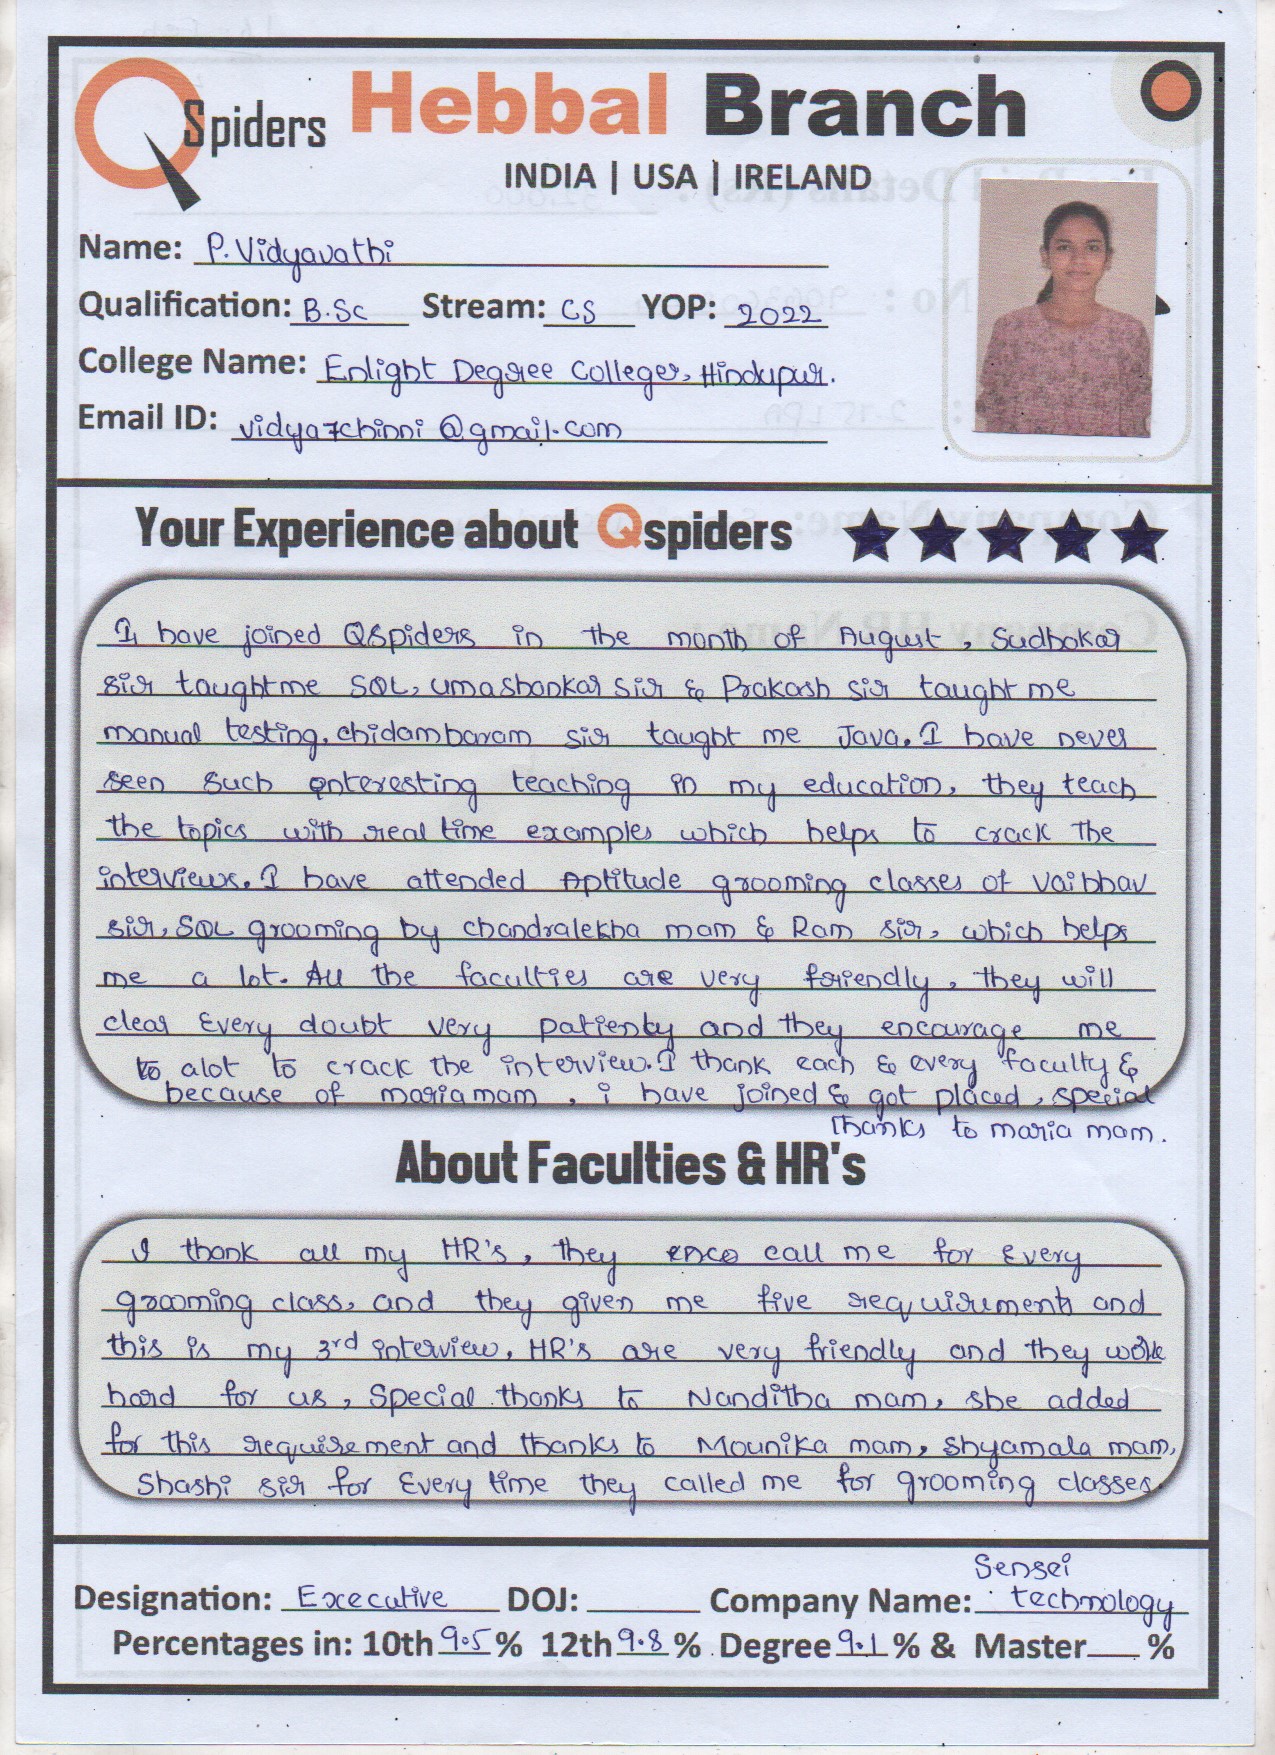 QSpiders Hebbal Branch
INDIA | USA | IRELAND
Name: P. Vidyavathi
Qualification: B.Sc Stream: CS YOP: 2022
College Name: Enlight Degree College, Hindupur.
Email ID: vidya7chinni@gmail.com
Your Experience about Qspiders
I have joined QSpiders in the month of August, Sudhakar
sir taught me SQL, umashankar sir & Prakash sir taught me
manual testing, chidambaram sir taught me Java. I have never
seen such interesting teaching in my education, they teach
the topics with real time examples which helps to crack the
interviews. I have attended Aptitude grooming classes of vaibhav
sir, SQL grooming by chandralekha mam & Ram sir, which helps
me a lot. All the faculties are very friendly, they will
clear Every doubt very patiently and they encourage me
to alot to crack the interview. I thank each & every faculty &
because of maria mam, i have joined & got placed, special
thanks to maria mam.
About Faculties & HR's
I thank all my HR's, they call me for Every
grooming class, and they given me five requirements and
this is my 3rd interview, HR's are very friendly and they work
hard for us, Special thanks to Nanditha mam, she added
for this requirement and thanks to Mounika mam, Shyamala mam,
Shashi sir for Every time they called me for grooming classes.
Sensei
Designation: Executive DOJ: Company Name: technology
Percentages in: 10th 9.5 % 12th 9.8 % Degree 9.1 % & Master %